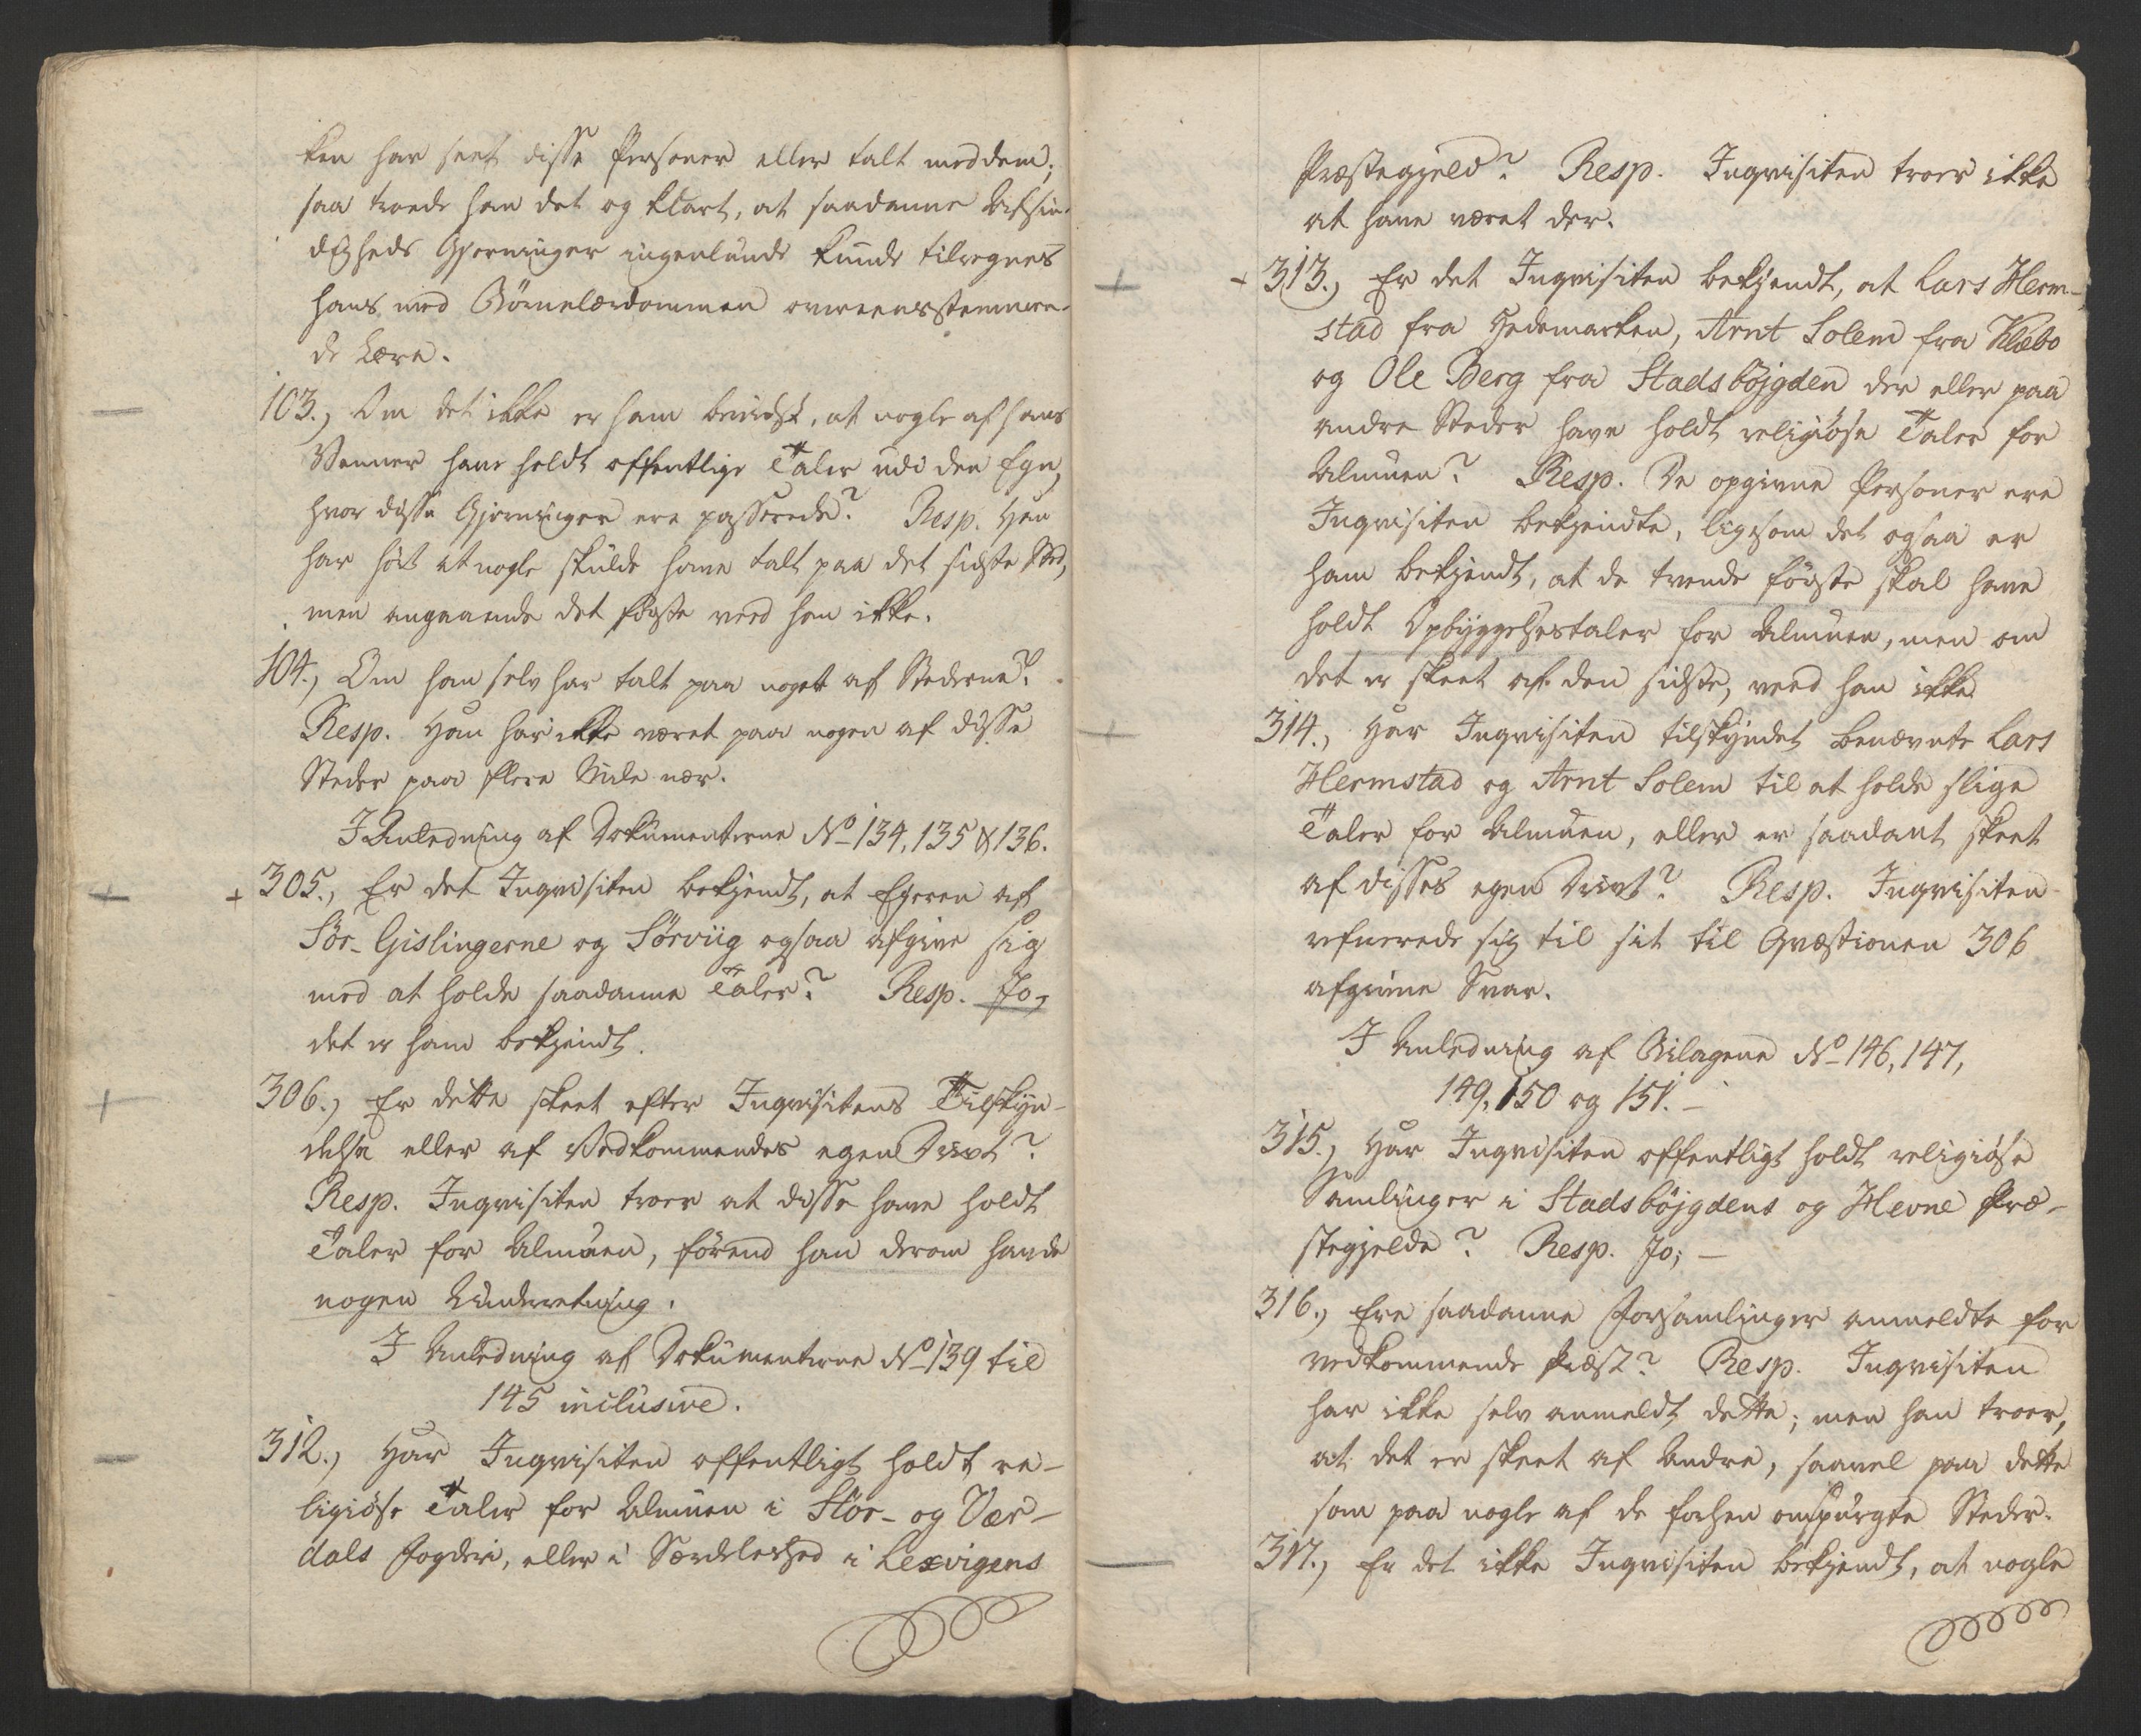 ken har seet disse Personer eller talt med dem;
saa troede han det og klart, at saadanne Afsin-
digheds Gjerninger ingenlunde kunde tilregnes
hans med Börnelærdommen overeensstemmen-
de Lære.
103.) Om det ikke er ham bevidst, at nogle af hans
Venner have holdt offentlige Taler udi den Egn,
hvor disse Gjerninger ere passerede? Resp. Han
har hört at nogle skulde have talt paa det sidste Sted,
men angaaende det förste veed han ikke.
104.) Om han selv har talt paa noget af Stederne?
Resp. Han har ikke været paa nogen af disse
Steder paa flere Mile nær.
I Anledning af Dokumenterne No 134, 135 & 136.
305.) Er det Inqvisiten bekjendt, at Eieren af
Sör-Gislingerne og Sörviig ogsaa afgive sig
med at holde saadanne Taler? Resp. Jo,
det er ham bekjendt.
306.) Er dette skeet efter Inqvisitens Tilskyn-
delse eller af Vedkommendes egen Drivt?
Resp. Inqvisiten troer at disse have holdt
Taler for Almuen, förend han derom havde
nogen Underretning.
I Anledning af Dokumenterne No 139 til
145 inclusive.
312.) Har Inqvisiten offentligt holdt re-
ligiöse Taler for Almuen i Stör- og Vær-
dals Fogderi, eller i Særdeleshed i Lexvigens
Præstegjeld? Resp. Inqvisiten troer ikke
at have været der.
313.) Er det Inqvisiten bekjendt, at Lars Herm-
stad fra Hedemarken, Arnt Solem fra Klæbo
og Ole Berg fra Stadsböjgden der eller paa
andre Steder have holdt religiöse Taler for
Almuen? Resp. De opgivne Personer ere
Inqvisiten bekjendte, ligesom det ogsaa er
ham bekjendt, at de tvende förste skal have
holdt Opbyggelsestaler for Almuen, men om
det er skeet af den sidste, veed han ikke
314.) Har Inqvisiten tilskyndet benævnte Lars
Hermstad og Arnt Solem til at holde slige
Taler for Almuen, eller er saadant skeet
af disses egen Drivt? Resp. Inqvisiten
refererede sig til sit til Qvæstionen 306
afgivne Svar.
I Anledning af Bilagene No 146, 147,
149, 150 og 151. –
315.) Har Inqvisiten offentligt holdt religiöse
Samlinger i Stadsböjgdens og Hevne Præ-
stegjelde? Resp. Jo; –
316.) Ere saadanne Forsamlinger anmeldte for
vedkommende Præst? Resp. Inqvisiten
har ikke selv anmeldt dette; men han troer,
at det er skeet af Andre, saavel paa dette
som paa nogle af de forhen omspurgte Steder.
317.) Er det ikke Inqvisiten bekjendt, at nogle